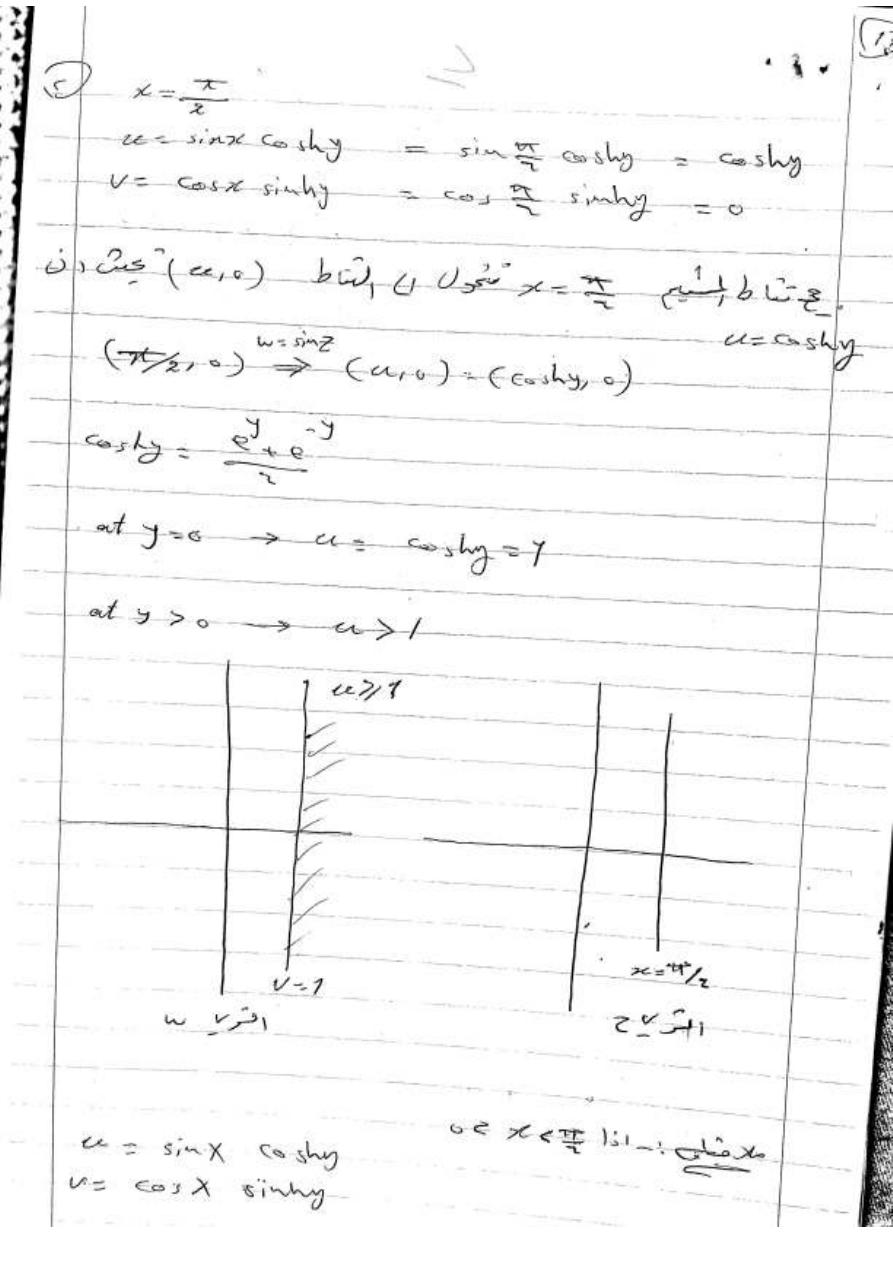 x = π/2
u = sinx coshy = sin π/2 coshy = coshy
v = cosx sinhy = cos π/2 sinhy = 0
نقاط المستقيم x = π/2 تتحول الى النقاط (u,0) بحيث ان
u = coshy
(π/2, 0) w = sinz ⇒ (u,0) = (coshy, 0)
coshy = (e^y + e^-y)/2
at y=0 → u = coshy = 1
at y > 0 → u > 1
u ≥ 1
v = 1
x = π/2
w
z
ملاحظة :- اذا 0 < x < π/2
u = sinX coshy
v = cosX sinhy